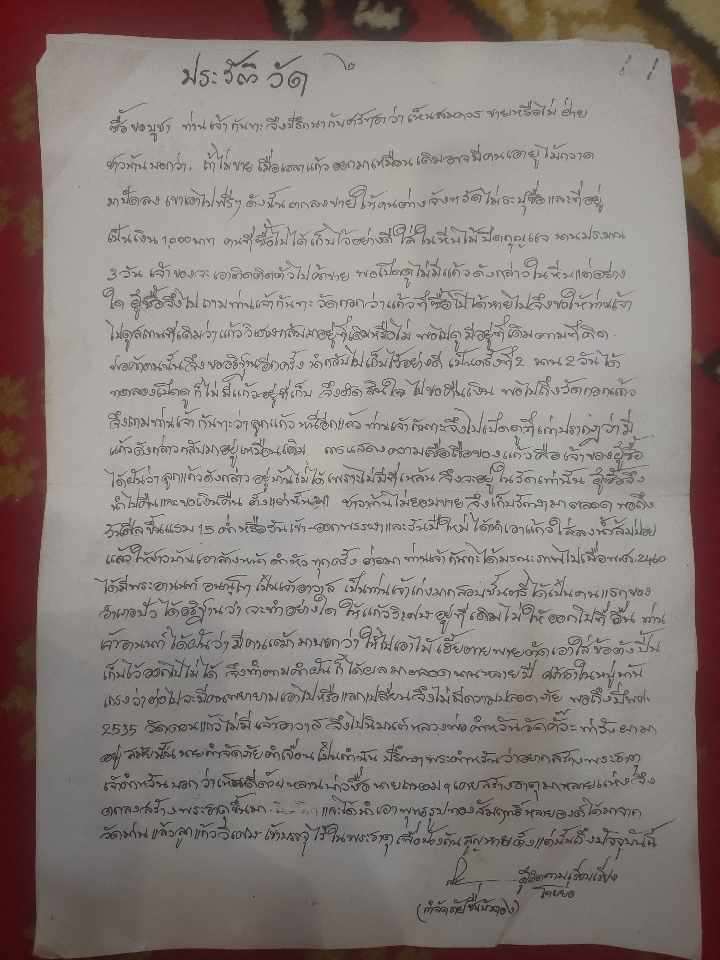 ประวัติ วัด ๒
ซื้อขอบูชา ท่านเจ้ากันทะจึงปรึกษากับศรัทธาว่าเห็นสมควรขายหรือไม่ ฝ่าย
ชาวบ้านบอกว่า ถ้าไม่ขาย เมื่อ แก้วออกมาเหมือนเดิมอาจมีคนเอาอยู่ ไม้กวาด
มาปัดลง เขาเอาไปฟรีๆ ดังนั้นตกลงขายให้คนต่างจังหวัดไม่ระบุชื่อและที่อยู่
เป็นเงิน 1,000 บาท คนที่ซื้อไปได้เก็บไว้อย่างดี ใส่ในหีบไม้ปิดกุญแจ นานประมาณ
3 วัน เจ้าของจะเอาติดตัวไปค้าขาย พอเปิดดูไม่มีแก้วดังกล่าวในหีบแต่อย่าง
ใด ผู้ซื้อจึงไปถามท่านเจ้ากันทะ วัดกอกว่าแก้วที่ซื้อไปได้หายไปจึงขอให้ท่านเจ้า
ไปดูสถานที่เดิมว่าแก้ววิเศษกลับมาอยู่ที่เดิมหรือไม่ พอไปดูมีอยู่ที่เดิมตามที่คิด
พ่อค้าคนนั้นจึงขออธิษฐานอีกครั้ง นำกลับไปเก็บไว้อย่างดี เป็นครั้งที่ 2 นาน 2 วันได้
ทดลองเปิดดู ก็ไม่มีแก้วอยู่ที่เก็บ จึงตัดสินใจไปขอคืนเงิน พอไปถึงวัดกอกแก้ว
จึงถามท่านเจ้ากันทะว่าลูกแก้วหนีอีกแล้ว ท่านเจ้ากันทะจึงไปเปิดดูที่เก่าปรากฏว่ามี
แก้วดังกล่าวกลับมาอยู่เหมือนเดิม การแสดงความ ของแก้วคือเจ้าของผู้ซื้อ
ได้ฝันว่าลูกแก้วดังกล่าวอยู่บ้านไม่ได้เพราะไม่มีที่เหล้น จึงจะอยู่ในวัดเท่านั้น ผู้ซื้อจึง
นำไปคืนและขอเงินคืน ตั้งแต่นั้นมา ชาวบ้านไม่ยอมขาย จึงเก็บรักษามาตลอด พอถึง
วันศีลขึ้นแรม 15 ค่ำ หรือวันเข้า-ออกพรรษาและวันปีใหม่ ได้นำเอาแก้วใส่ลงน้ำส้มป่อย
แล้วให้ชาวบ้านเอาล้างหน้าดำหัวทุกครั้ง ต่อมา ท่านเจ้ากันทะได้มรณะภาพไปเมื่อ พ.ศ. 2460
ได้มีพระอานนท์ อนนฺโท เป็นเจ้าอาวาส เป็นท่านเจ้าเก่งมากสอบชั้นตรีได้เป็นคนแรกของ
อำเภอปัว ได้อธิษฐานว่าจะทำอย่างใดให้แก้ววิเศษอยู่ที่เดิมไม่ให้ออกไปที่อื่น ท่าน
เจ้าอานนท์ได้ฝันว่ามีคนเฒ่ามาบอกว่าให้ไปเอาไม้เฮี้ยตายพายตัดเอาใส่ข้อตั้งปั้น
เก็บไว้ออกไปไม่ได้ จึงทำตามคำฝันก็ได้ผลมาตลอดนานหลายปี ศรัทธาในหมู่บ้าน
เกรงว่าต่อไปจะมีคนพยายามเอาไปหรือแลกเปลี่ยนจึงไม่มีความปลอดภัย พอถึงปี พ.ศ.
2535 วัดดอนแก้วไม่มีเจ้าอาวาส จึงไปนิมนต์หลวงพ่อคำหวันวัด มา
อยู่ สมัยนั้นนายกำจัดภัย เป็นกำนัน ปรึกษาพระคำหวันว่าอยากสร้างพระธาตุ
เจ้าคำหวันบอกว่าเห็นดีด้วย หลานบ่าวชื่อนายถนอม ๆ เคยสร้างธาตุมาหลายแห่ง จึง
ตกลงสร้างพระธาตุขึ้นมา และได้นำเอาพุทธรูปทองสัมฤทธิ์หลายองค์ได้มาจาก
วัดม่าน แล้วลูกแก้ววิเศษเข้าบรรจุไว้ในพระธาตุเพื่อป้องกันสูญหายตั้งแต่นั้นถึงปัจจุบันนี้
ผู้ติดตามเรียบเรียง
โดยย่อ